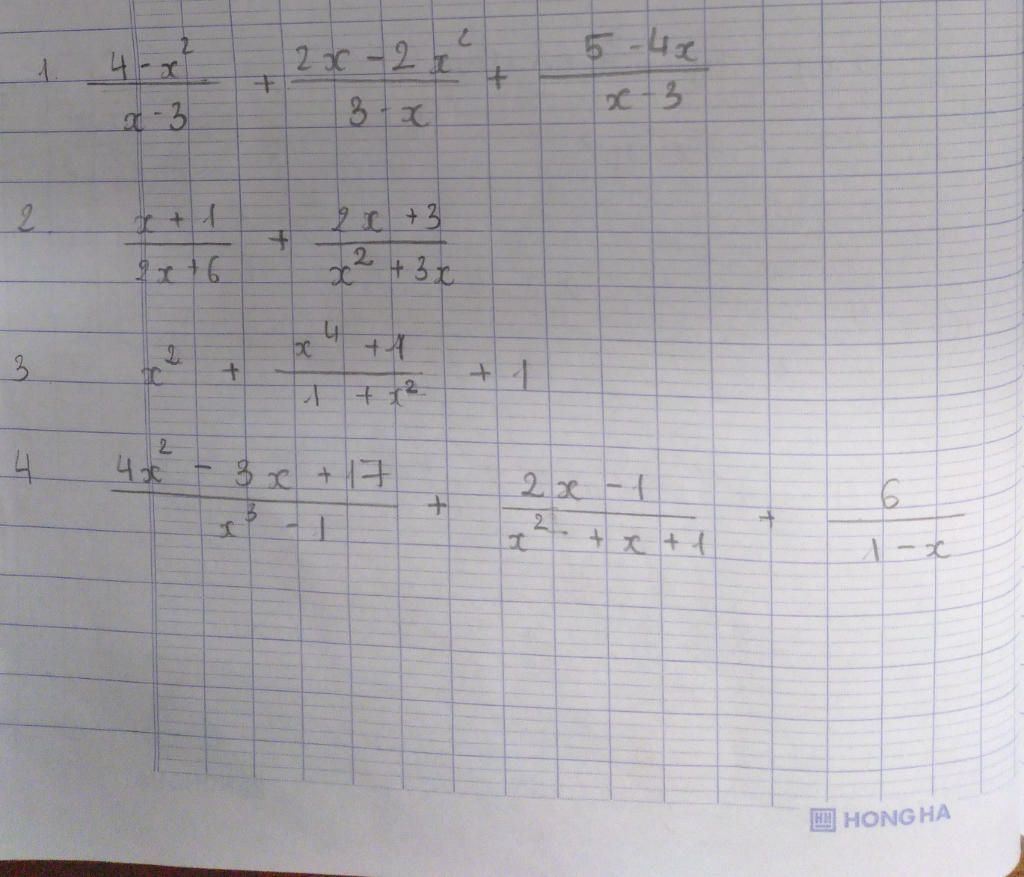 1. \frac{4-x^2}{x-3} + \frac{2x-2x^2}{3-x} + \frac{5-4x}{x-3}
2 \frac{x+1}{2x+6} + \frac{2x+3}{x^2+3x}
3 x^2 + \frac{x^4+1}{1+x^2} + 1
4 \frac{4x^2-3x+17}{x^3-1} + \frac{2x-1}{x^2+x+1} + \frac{6}{1-x}
HONG HA